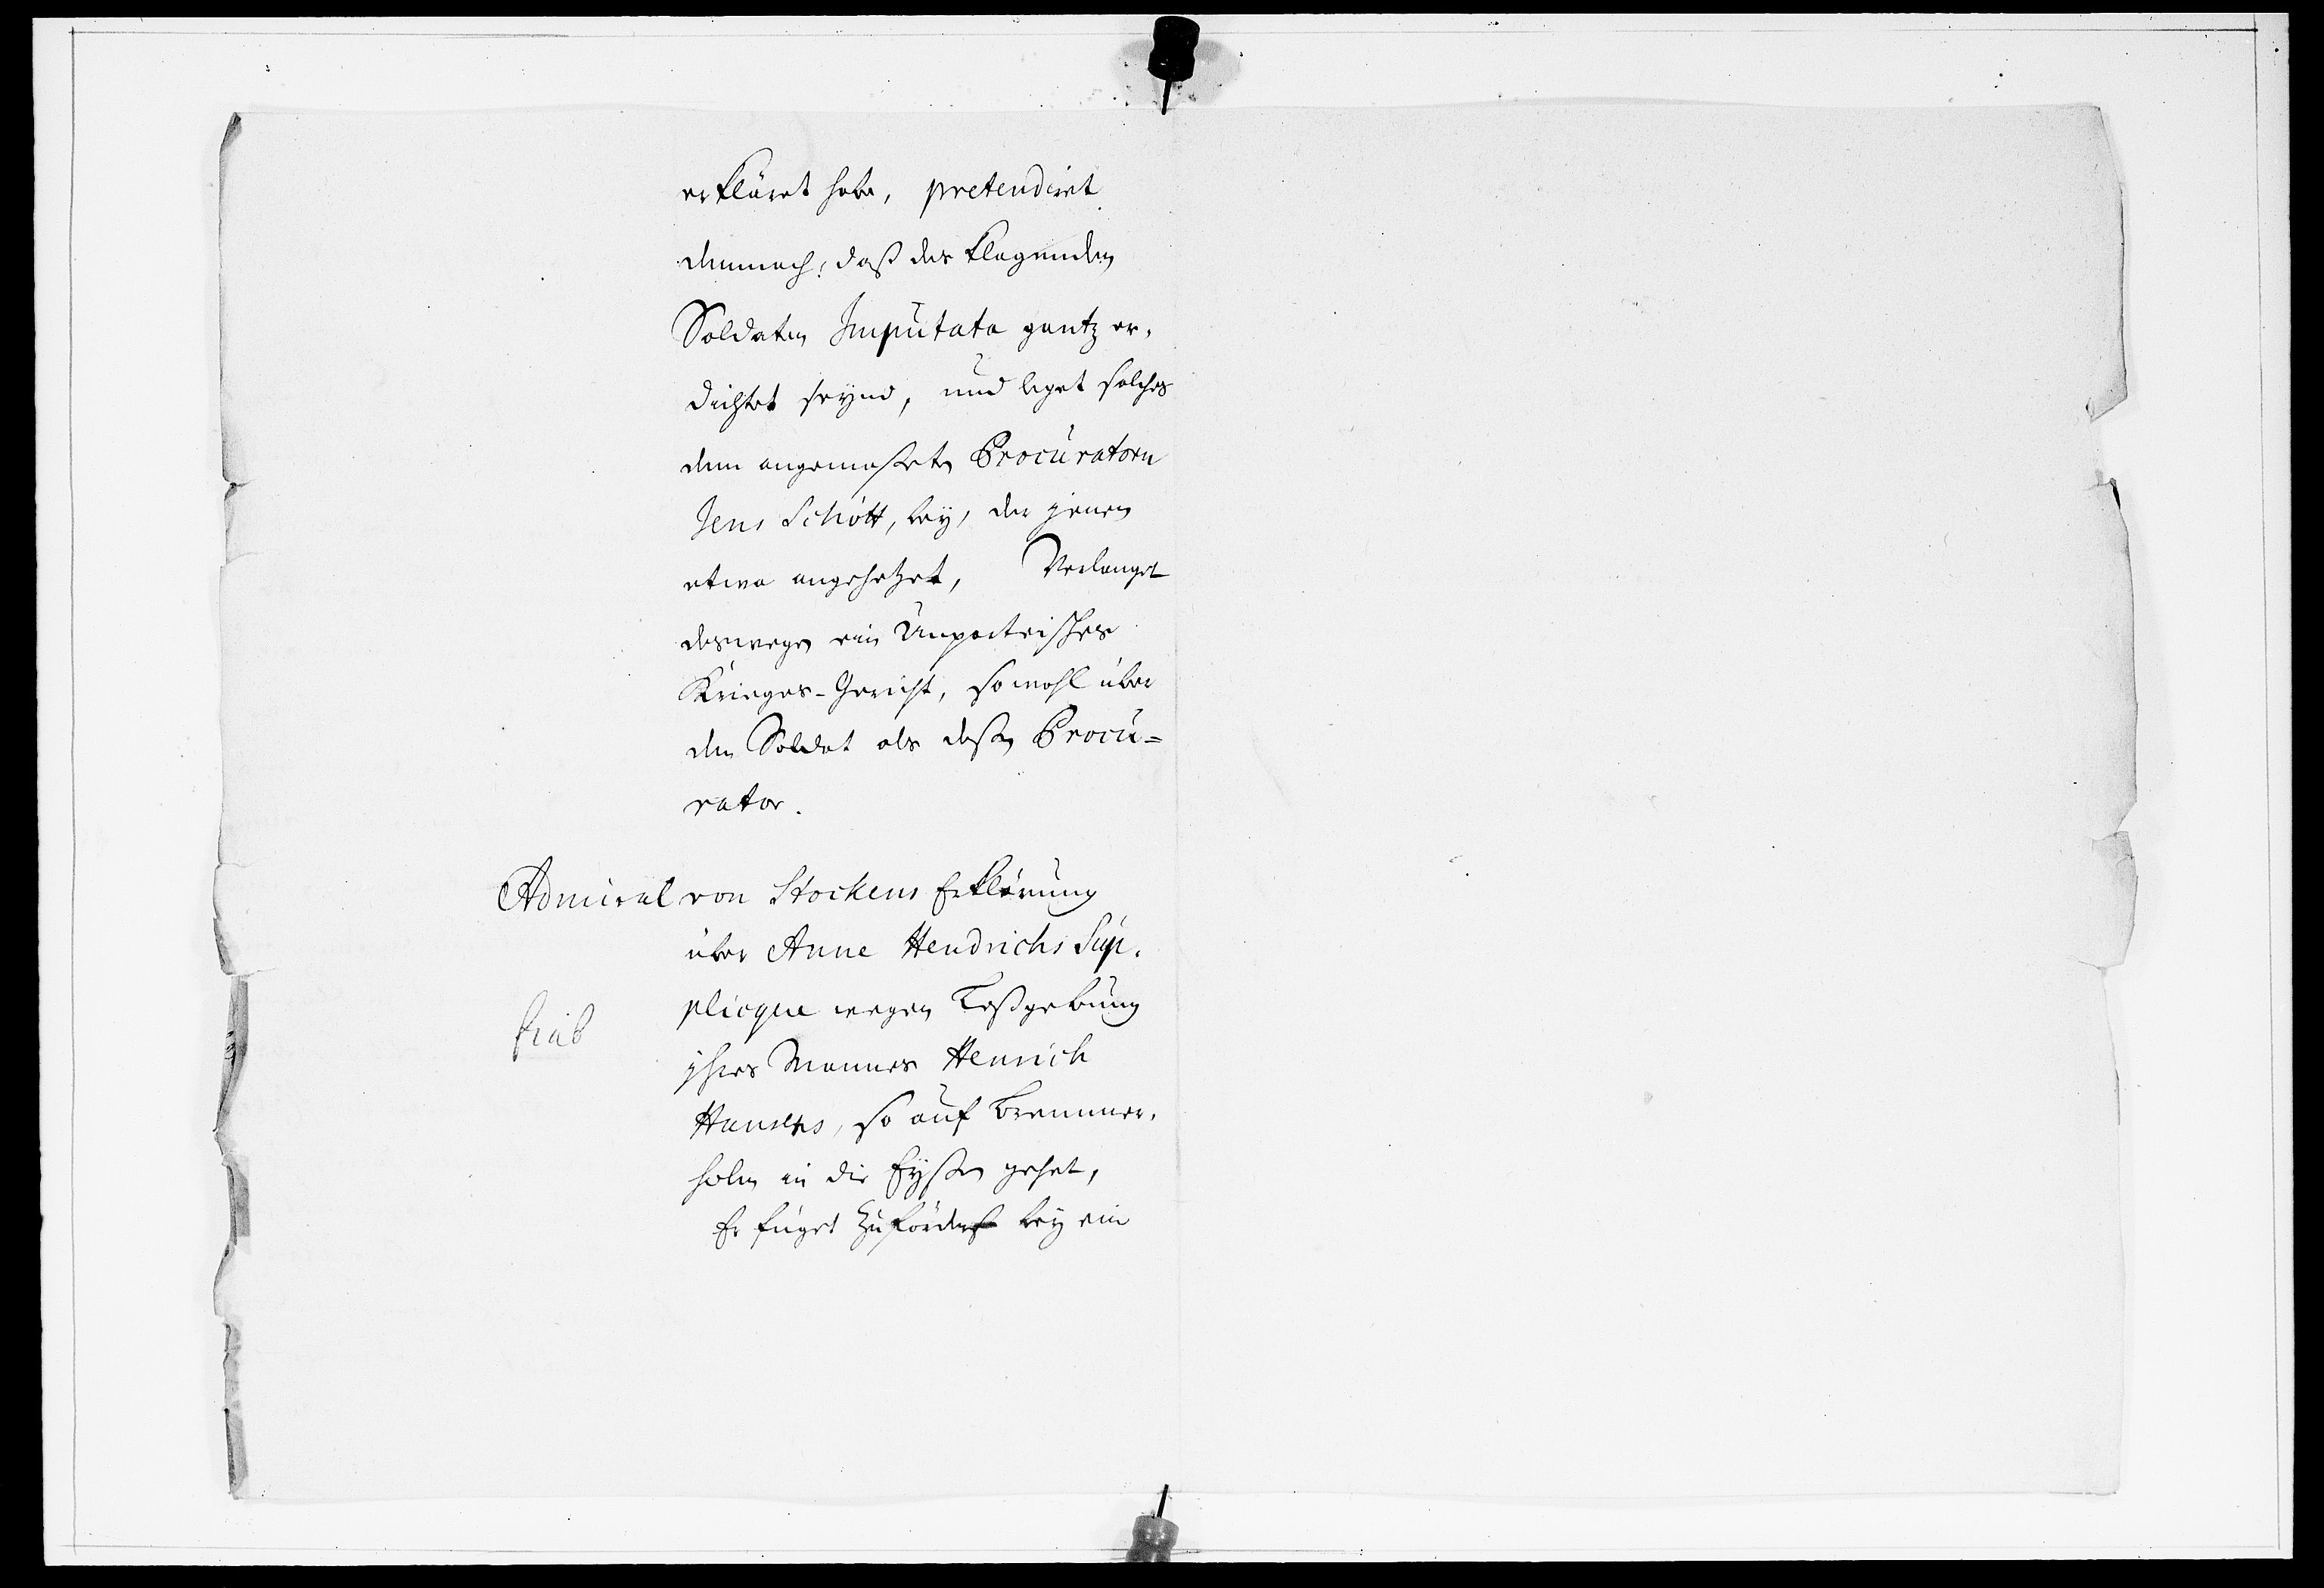 erkläret habe, pretendiret
demnach, daß des klagenden
Soldaten Imputata gantz er,
dichtet seynd, und leget solches
dem angemaßeten Procuratorn
Jens Schött, bey, der jenen
etwa angehetzet, Verlanget
deswegen ein Unparteisches
Krieges-Gericht, sowohl über
den Soldat als deßen Procu=
rator.
Admiral von Stockens Erklärung
über Anne Hendrichs Sup,
plicque wegen Loßgebung
ihres Mannes Henrich
Hansens, so auf Bremmer,
holm in die Eyßen gehet,
Er füget zuforderst bey ein